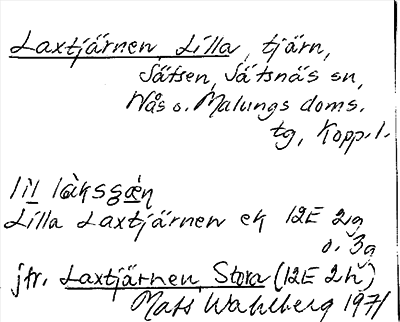 Laxtjärnen, Lilla, tjärn,
Sätsen, Sätsnäs sn,
Nås o. Malungs doms.
tg, Kopp. l.
lìl làksgæ̀ṇ
Lilla Laxtjärnen ek 12E 2g
o. 3g
jfr. Laxtjärnen, Stora (12E 2h)
Mats Wahlberg 1971